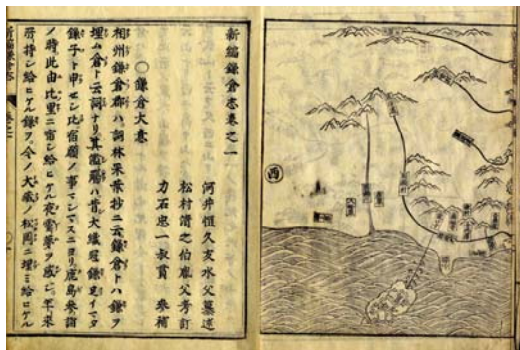 西
新編鎌倉志巻之一
河井恒久友水父纂述
松村清之伯胤父考訂
力石忠一叔貫 参補
○鎌倉大意
相州鎌倉郡ハ詞林采葉抄ニ云鎌倉トハ鎌ヲ
埋ム倉ト云詞ナリ其濫觴ハ昔大織冠鎌足イマタ
鎌子ト申セシ比宿願ノ事マシマスニヨリ鹿島参詣
ノ時此由比里ニ宿シ給ヒケル夜霊夢ヲ感シ年来
所持シ給ヒケル鎌ヲ今ノ大蔵ノ松岡ニ埋ミ給ヒケル